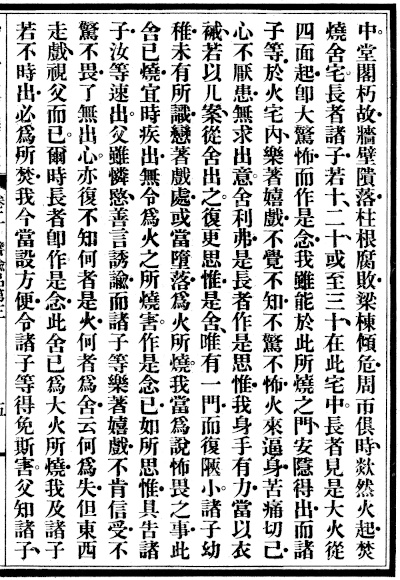 中。堂閣朽故、牆壁隤落、柱根腐敗、梁棟傾危、周帀俱時、欻然火起、焚
燒舍宅。長者諸子、若十、二十、或至三十、在此宅中。長者見是大火從
四面起、卽大驚怖、而作是念、我雖能於此所燒之門、安隱得出、而諸
子等、於火宅內、樂著嬉戲、不覺不知、不驚不怖、火來逼身、苦痛切己、
心不厭患、無求出意。舍利弗、是長者作是思惟、我身手有力、當以衣
裓、若以几案、從舍出之。復更思惟、是舍、唯有一門、而復陿小、諸子幼
稚、未有所識、戀著戲處、或當墮落、爲火所燒、我當爲說怖畏之事、此
舍已燒、宜時疾出、無令爲火之所燒害。作是念已、如所思惟、具告諸
子、汝等速出。父雖憐愍、善言誘諭、而諸子等、樂著嬉戲、不肯信受、不
驚不畏、了無出心、亦復不知何者是火、何者爲舍、云何爲失、但東西
走戲、視父而已。爾時長者卽作是念、此舍已爲大火所燒、我及諸子
若不時出、必爲所焚、我今當設方便、令諸子等得免斯害。父知諸子、